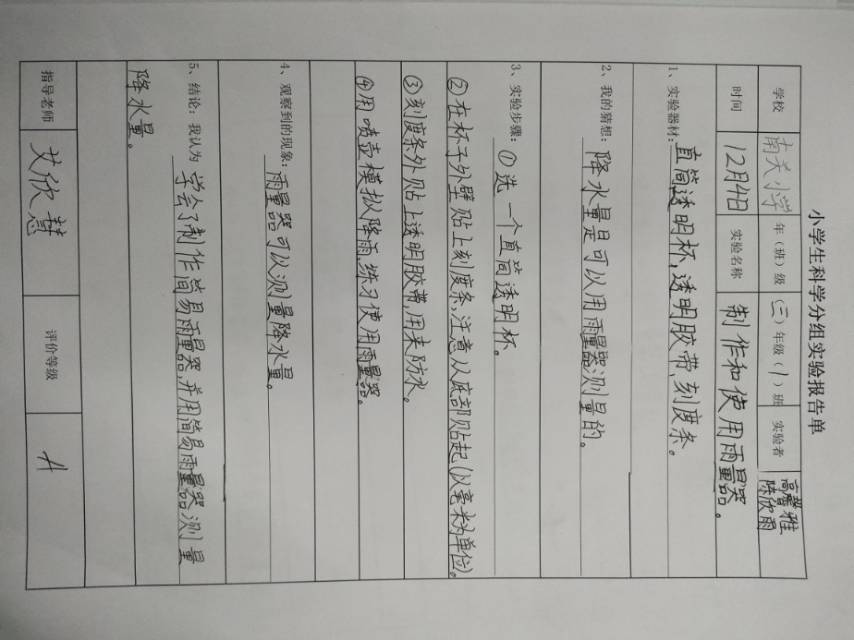 小学生科学分组实验报告单
学校 南关小学 年（班）级 （三）年级（1）班 实验者 高馨雅 陈欣雨
时间 12月4日 实验名称 制作和使用雨量器。
1、实验器材：直筒透明杯，透明胶带，刻度条。
2、我的猜想：降水量是可以用雨量器测量的。
3、实验步骤：①选一个直筒透明杯。
②在杯子外壁贴上刻度条，注意从底部贴起（以毫米为单位）。
③刻度条外贴上透明胶带，用来防水。
④用喷壶模拟降雨，练习使用雨量器。
4、观察到的现象：雨量器可以测量降水量。
5、结论：我认为 学会了制作简易雨量器，并用简易雨量器测量
降水量。
指导老师 艾欣慧 评价等级 A